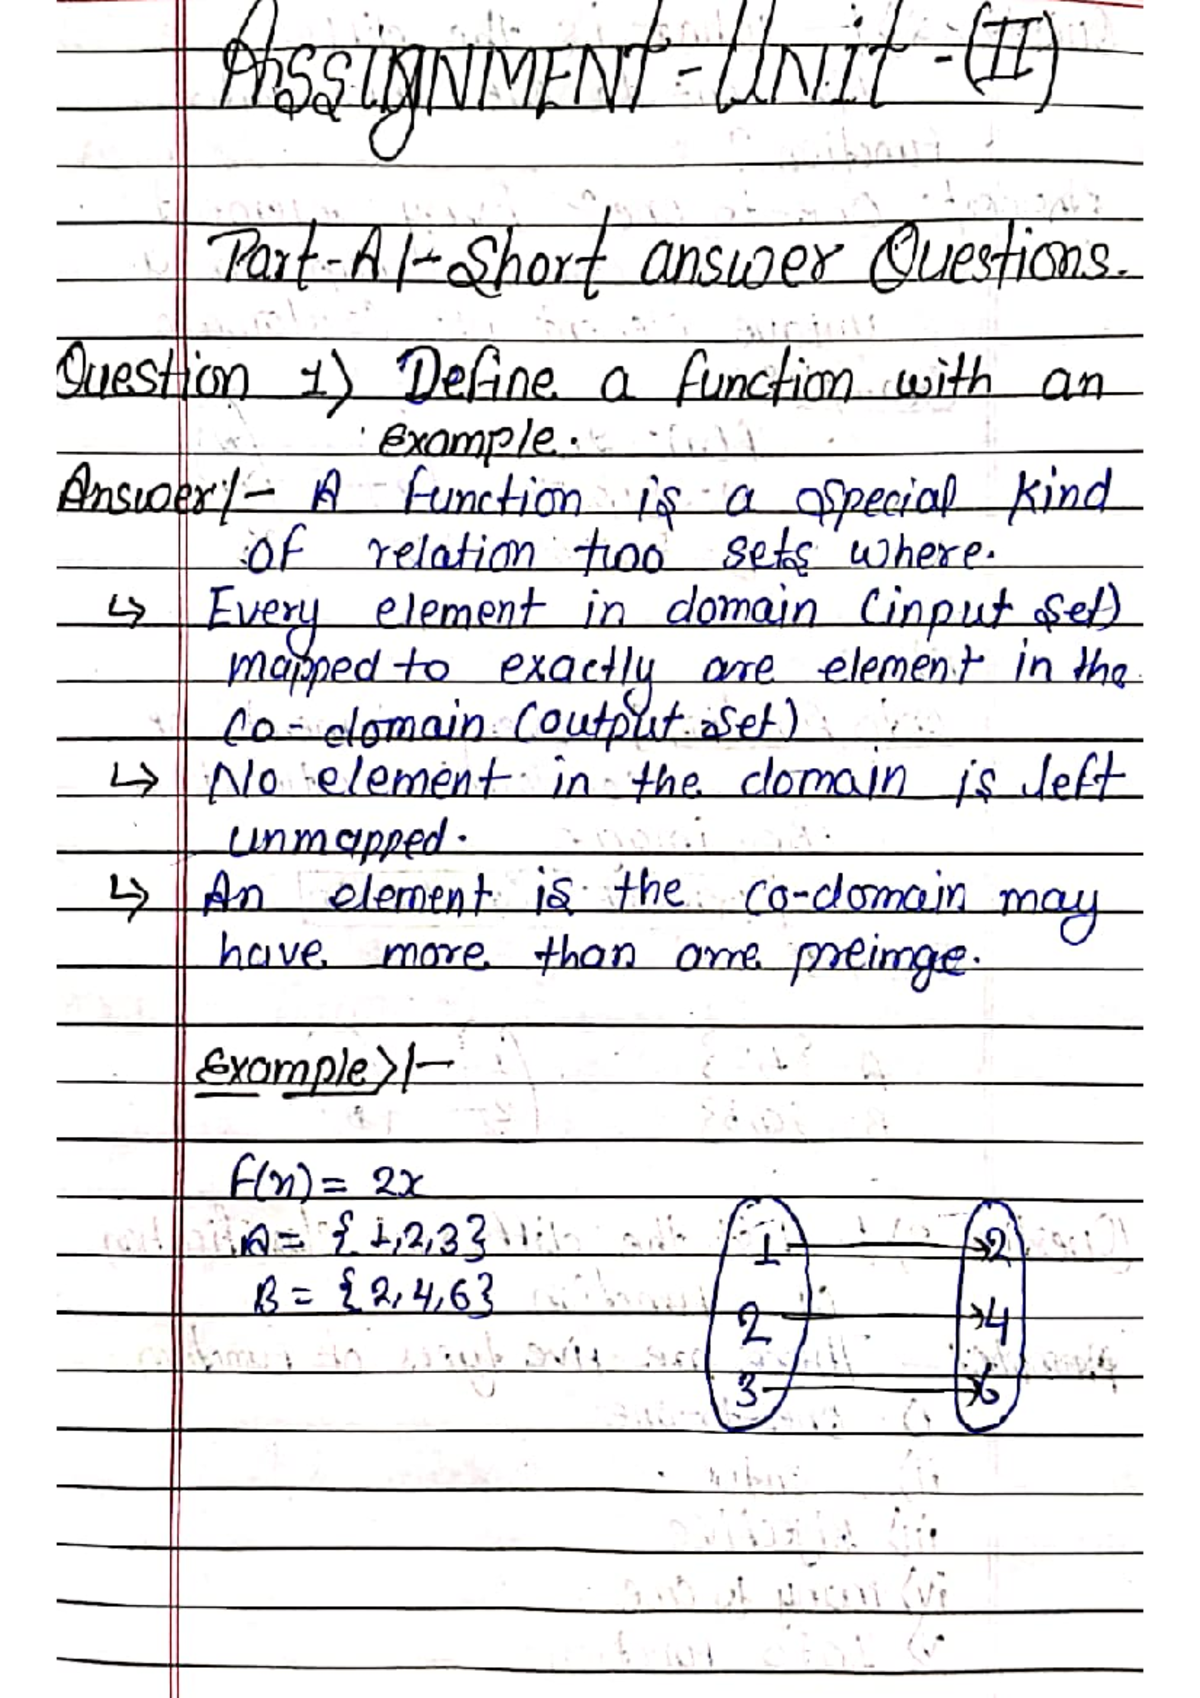 ASSIGNMENT-UNIT-(II)
Part-A:- Short answer Questions.
Question 1) Define a function with an
example.
Answer:- A function is a special kind
of relation two sets where.
↳ Every element in domain (input set)
mapped to exactly one element in the
co-domain (output set)
↳ No element in the domain is left
unmapped.
↳ An element is the co-domain may
have more than one preimge.
Example:-
f(n) = 2x
A = {1,2,3}
B = {2,4,6}
1 → 2
2 → 4
3 → 6